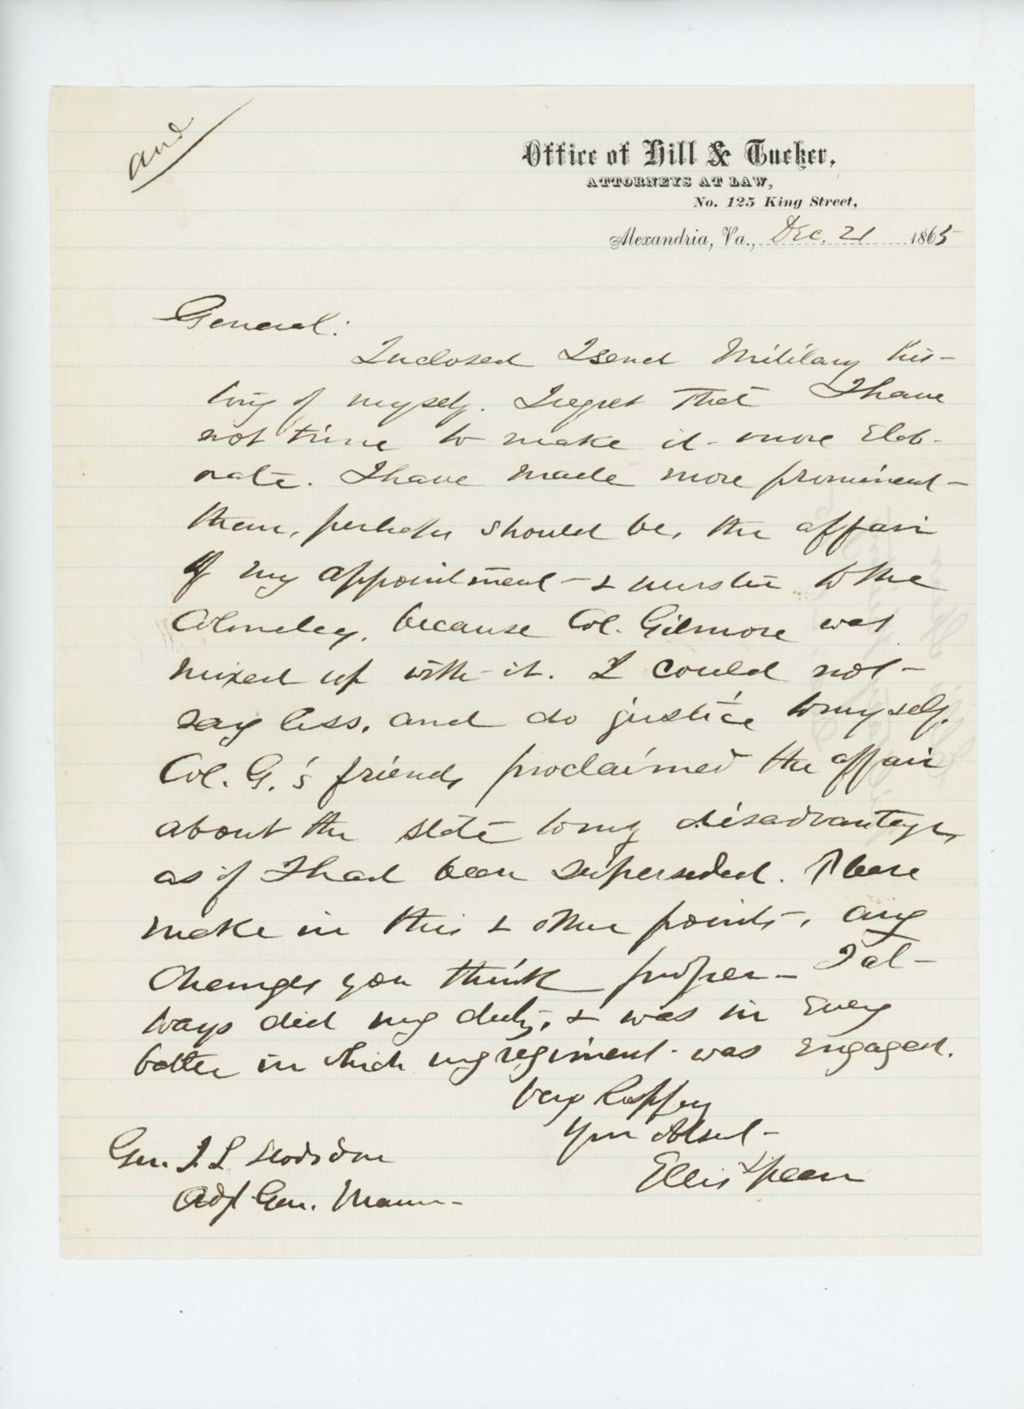 and
Office of Hill & Tucker,
ATTORNEYS AT LAW,
No. 125 King Street,
Alexandria, Va., Dec. 21 1865
General:
Inclosed I send Military his-
tory of myself. I regret that I have
not time to make it more elab-
orate. I have made more prominent
than, perhaps should be, the affair
of my appointment & muster to the
Colonelcy, because Col. Gilmore was
mixed up with it. I could not
say less, and do justice to myself.
Col. G.'s friends proclaimed the affair
about the state to my disadvantage,
as if I had been superseded. Please
make in this & other points, any
changes you think proper - I al-
ways did my duty, & was in every
battle in which my regiment was engaged.
Very Respfly
Your obdt
Ellis Spear
Gen. J. L. Hodsdon
Adjt Gen. Maine